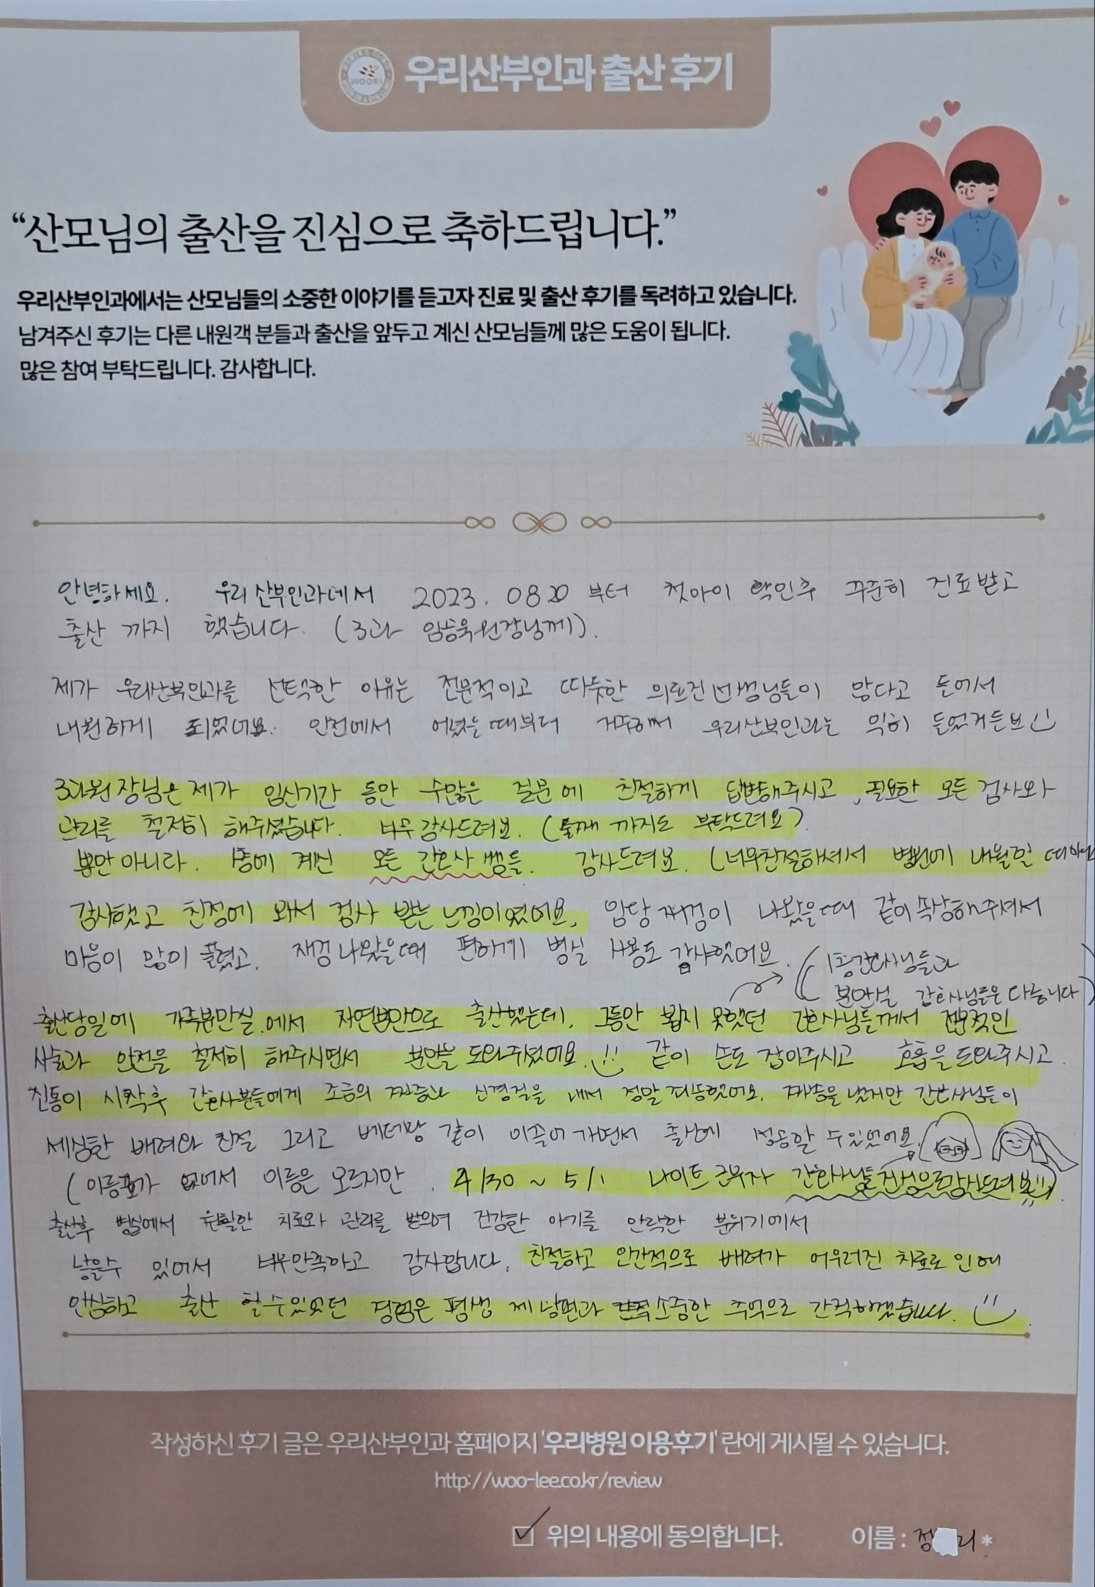 우리산부인과 출산 후기
“산모님의 출산을 진심으로 축하드립니다.”
우리산부인과에서는 산모님들의 소중한 이야기를 듣고자 진료 및 출산 후기를 독려하고 있습니다.
남겨주신 후기는 다른 내원객 분들과 출산을 앞두고 계신 산모님들께 많은 도움이 됩니다.
많은 참여 부탁드립니다. 감사합니다.
안녕하세요. 우리 산부인과에서 2023. 0820 부터 첫아이 확인후 꾸준히 진료받고
출산 까지 했습니다. (3과 원장님께).
제가 우리산부인과를 선택한 이유는 전문적이고 따듯한 의료진 선생님들이 많다고 들어서
내원하게 되었어요. 인천에서 어렸을때부터 거주해서 우리산부인과는 익히 들었거든요
3과원장님은 제가 임신기간 동안 수많은 질문에 친절하게 답변해주시고, 필요한 모든 검사와
관리를 철저히 해주셨습니다. 너무 감사드려요. (둘째 까지도 부탁드려요).
뿐만 아니라. 1층에 계신 모든 간호사 쌤들. 감사드려요. (너무친절하셔서 병원에 내원할 때마다
감사했고 친정에 와서 검사 받는 느낌이였어요. 임당 재검이 나왔을때 같이 속상해주셔서
마음이 많이 풀렸고, 재검 나왔을때 편하게 병실 사용도 감사했어요.
(1층간호사님들과
분만실 간호사님들은 다릅니다)
출산당일에 가족분만실에서 자연분만으로 출산했는데, 그동안 뵙지 못했던 간호사님들께서 전문적인
안전을 철저히 해주시면서 분만을 도와주셨어요. 같이 손도 잡아주시고 호흡을 도와주시고.
진통이 시작후 간호사분들에게 조금의 짜증과 신경질을 내서 정말 죄송했어요. 짜증을 냈지만 간호사님들이
세심한 배려와 친절 그리고 베테랑 같이 이끌어 가면서 출산에 성공할 수있었어요.
(이름표가 없어서 이름은 모르지만. 4/30 ~ 5/1 나이트 근무자 간호사님들 진심으로감사드려요!!)
출산후 병실에서 원활한 치료와 관리를 받으며 건강한 아기를 안락한 분위기에서
낳을수 있어서 너무만족하고 감사합니다. 친절하고 인간적으로 배려가 어우러진 치료로 인해
안심하고 출산 할수있었던 경험은 평생 제 남편과 소중한 추억으로 간직하겠습니다.
작성하신 후기 글은 우리산부인과 홈페이지 '우리병원 이용후기' 란에 게시될 수 있습니다.
http://woo-lee.co.kr/review
위의 내용에 동의합니다. 이름 : 정 리 *